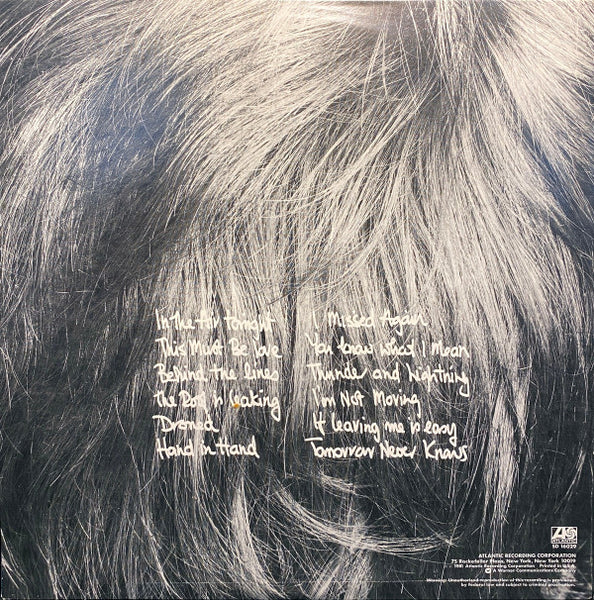 In the Air Tonight
This Must Be Love
Behind the Lines
The Roof is leaking
Droned
Hand in Hand
I Missed Again
You Know What I Mean
Thunder and Lightning
I'm Not Moving
If leaving me is easy
Tomorrow Never Knows
ATLANTIC
SD 16029
ATLANTIC RECORDING CORPORATION
75 Rockefeller Plaza, New York, New York 10019
1981 Atlantic Recording Corporation Printed in U.S.A.
A Warner Communications Company
Warning: Unauthorized reproduction of this recording is prohibited by
Federal law and subject to criminal prosecution.